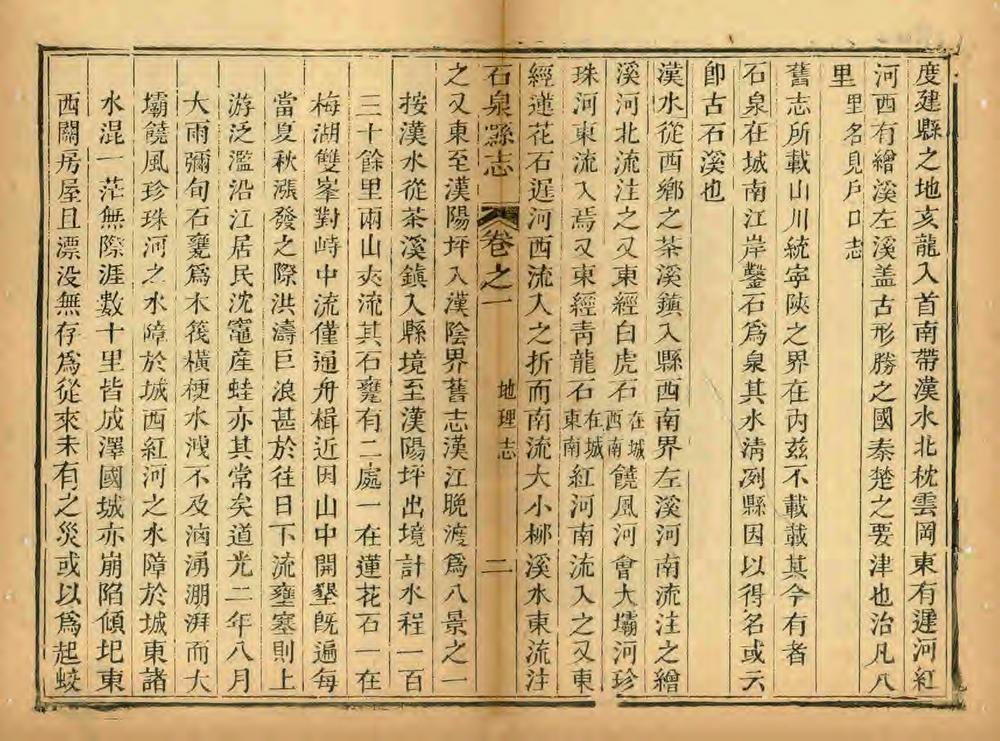 度建縣之地亥龍入首南帶漢水北枕雲岡東有遲河紅
河西有繪溪左溪盖古形勝之國秦楚之要津也治凡八
里里名見戶口志
舊志所載山川統寧陝之界在內兹不載載其今有者
石泉在城南江岸鑿石爲泉其水淸冽縣因以得名或云
卽古石溪也
漢水從西鄉之茶溪鎮入縣西南界左溪河南流注之繪
溪河北流注之又東經白虎石在城西南饒風河會大壩河珍
珠河東流入焉又東經靑龍石在城東南紅河南流入之又東
經蓮花石遲河西流入之折而南流大小柳溪水東流注
石泉縣志 卷之一 地理志 二
之又東至漢陽坪入漢陰界舊志漢江晚渡爲八景之一
按漢水從茶溪鎮入縣境至漢陽坪出境計水程一百
三十餘里兩山夾流其石甕有二處一在蓮花石一在
梅湖雙峯對峙中流僅通舟楫近因山中開墾旣遍每
當夏秋漲發之際洪濤巨浪甚於往日下流壅塞則上
游泛濫沿江居民沈竈産蛙亦其常矣道光二年八月
大雨彌旬石甕爲木筏橫梗水洩不及滷湧淜湃而大
壩饒風珍珠河之水障於城西紅河之水障於城東諸
水混一茫無際涯數十里皆成澤國城亦崩陷傾圯東
西關房屋且漂没無存爲從來未有之災或以爲起蛟